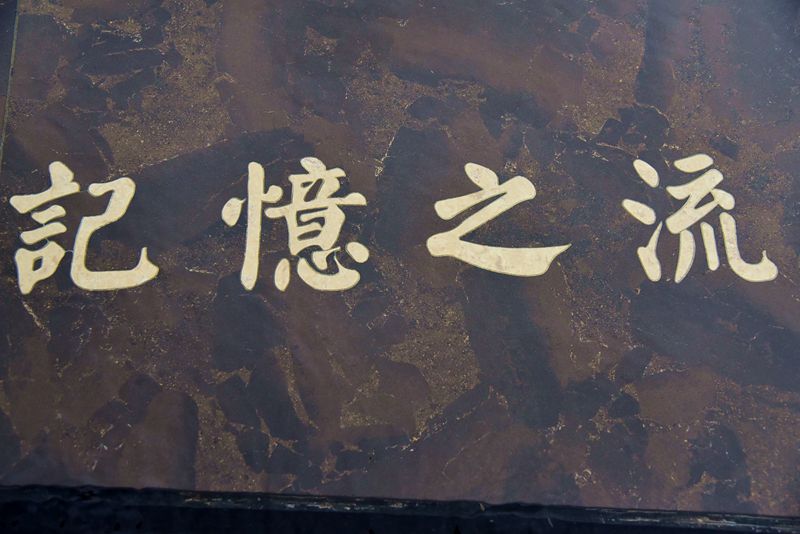 記憶之流